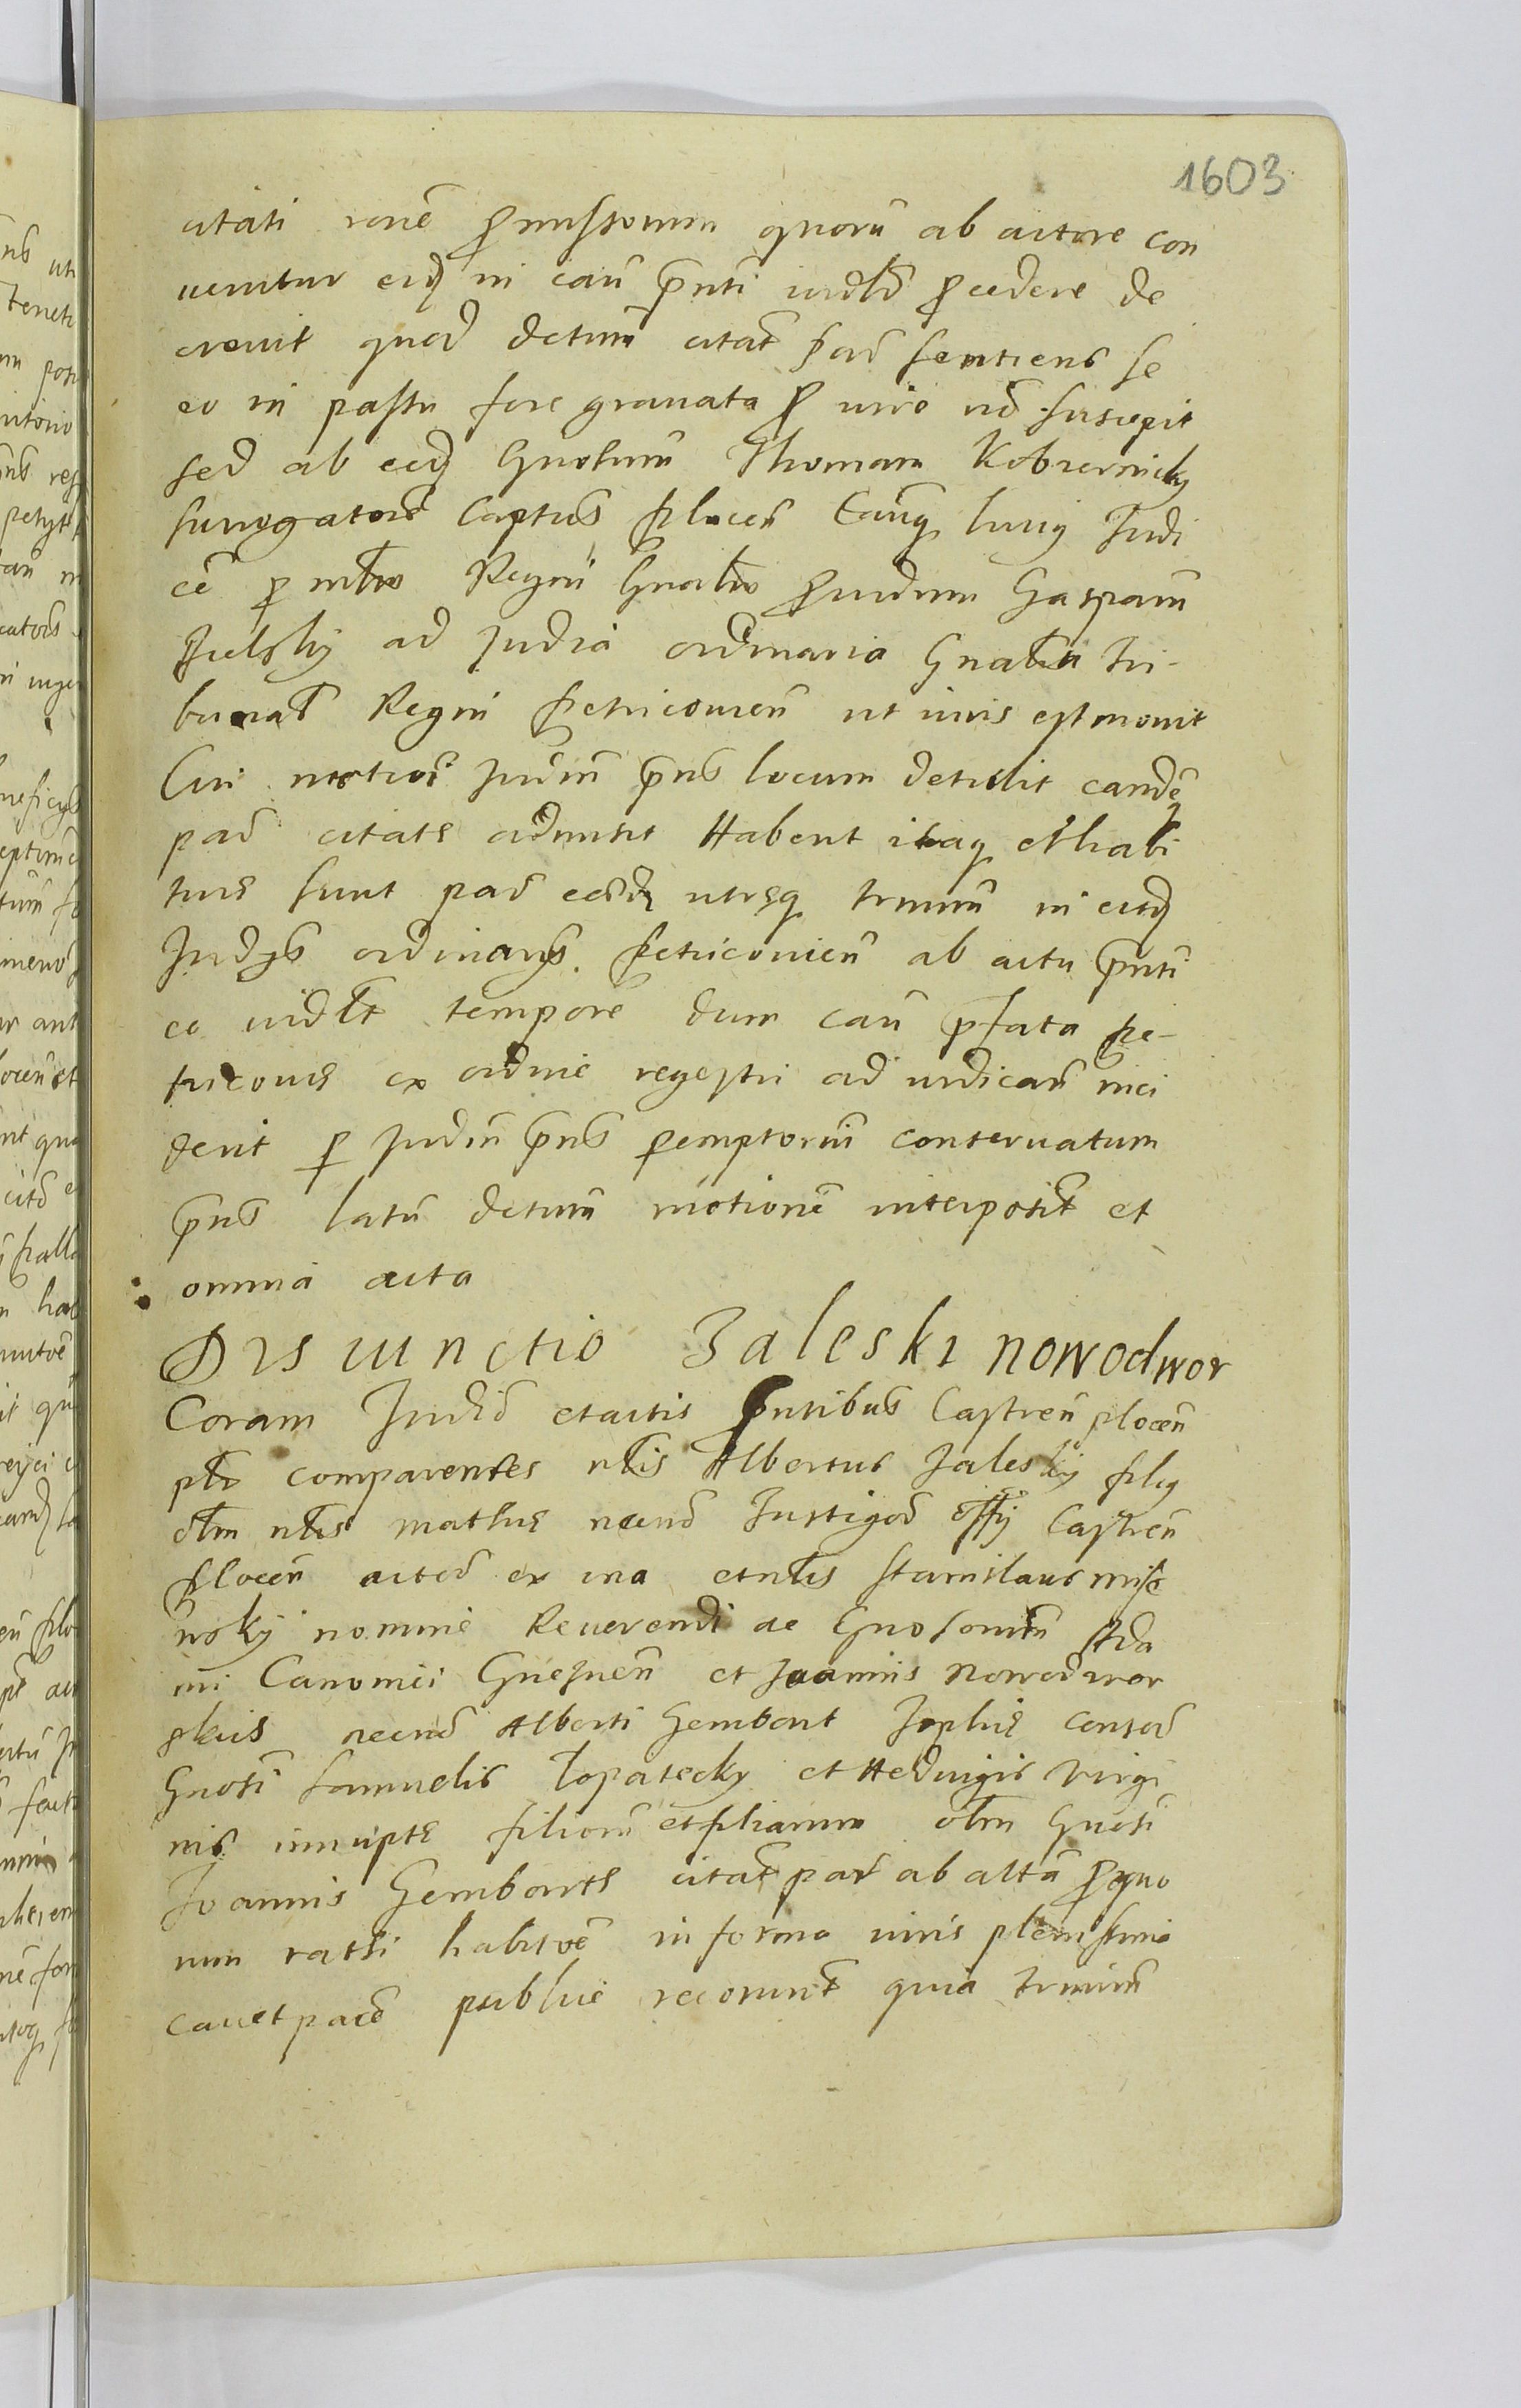 1603
citati rone pmissorum quorũ ab actore con
uenitur eidẽ in cau pñti iudłr pcedere de
creuit quod decretũ citat pars sentiens se
eo in passu fore grauata p uiro nõ suscepit
sed ab eodẽ Gnosum Thomam Kobiernicky
surrogatorẽ Captus plocen tanq huiq Judi
cẽ p mltro Regni Gnałm pudum Gasparũ
Jielsky ad Judia ordinaria Gnałia tri-
bunał Regni petricouien ut iuris est mouit
Cui motioni Judiũ pñs locum detulit eandẽ
par citate admisit Habent itaq et habi
ture sunt par eedẽ utreq trminũ in eisdẽ
Judijs ordinarijs petricouien ab actu pñti
eo uidłt tempore dum cau pfata pe-
tricouie ex ordine regestri ad iudicań inci
derit p Judiũ pñs pemptoriũ conseruatum
pñs latũ decretũ motionẽ interposit et
omnia acta
Disiunctio Zaleski nowodwor
Coram Judiõ etactis pñtibus Castren plocen
płr comparentes nłis Albertus Zalesky filiq
olm nłis mathie necnõ Instigor offij Castren
plocen actor ex una etnłis Stanislaus mise
nsky nomine Reuerendi ac Gnosorum Ada
mi Canonici Gnesnen et Joannis Nowodwor
skiis necnõ Alberti Gembart Zophie consor
Gnosi Samuelis Lopatecky et Heduigis virgi
nis innupte filiorũ etfiliarum olm Gnosi
Joannis Gembarte citat par ab altã p quo
rum rathi habitoẽ in forma iuris plenissima
cauet parẽ publice recorunt quia trminũ